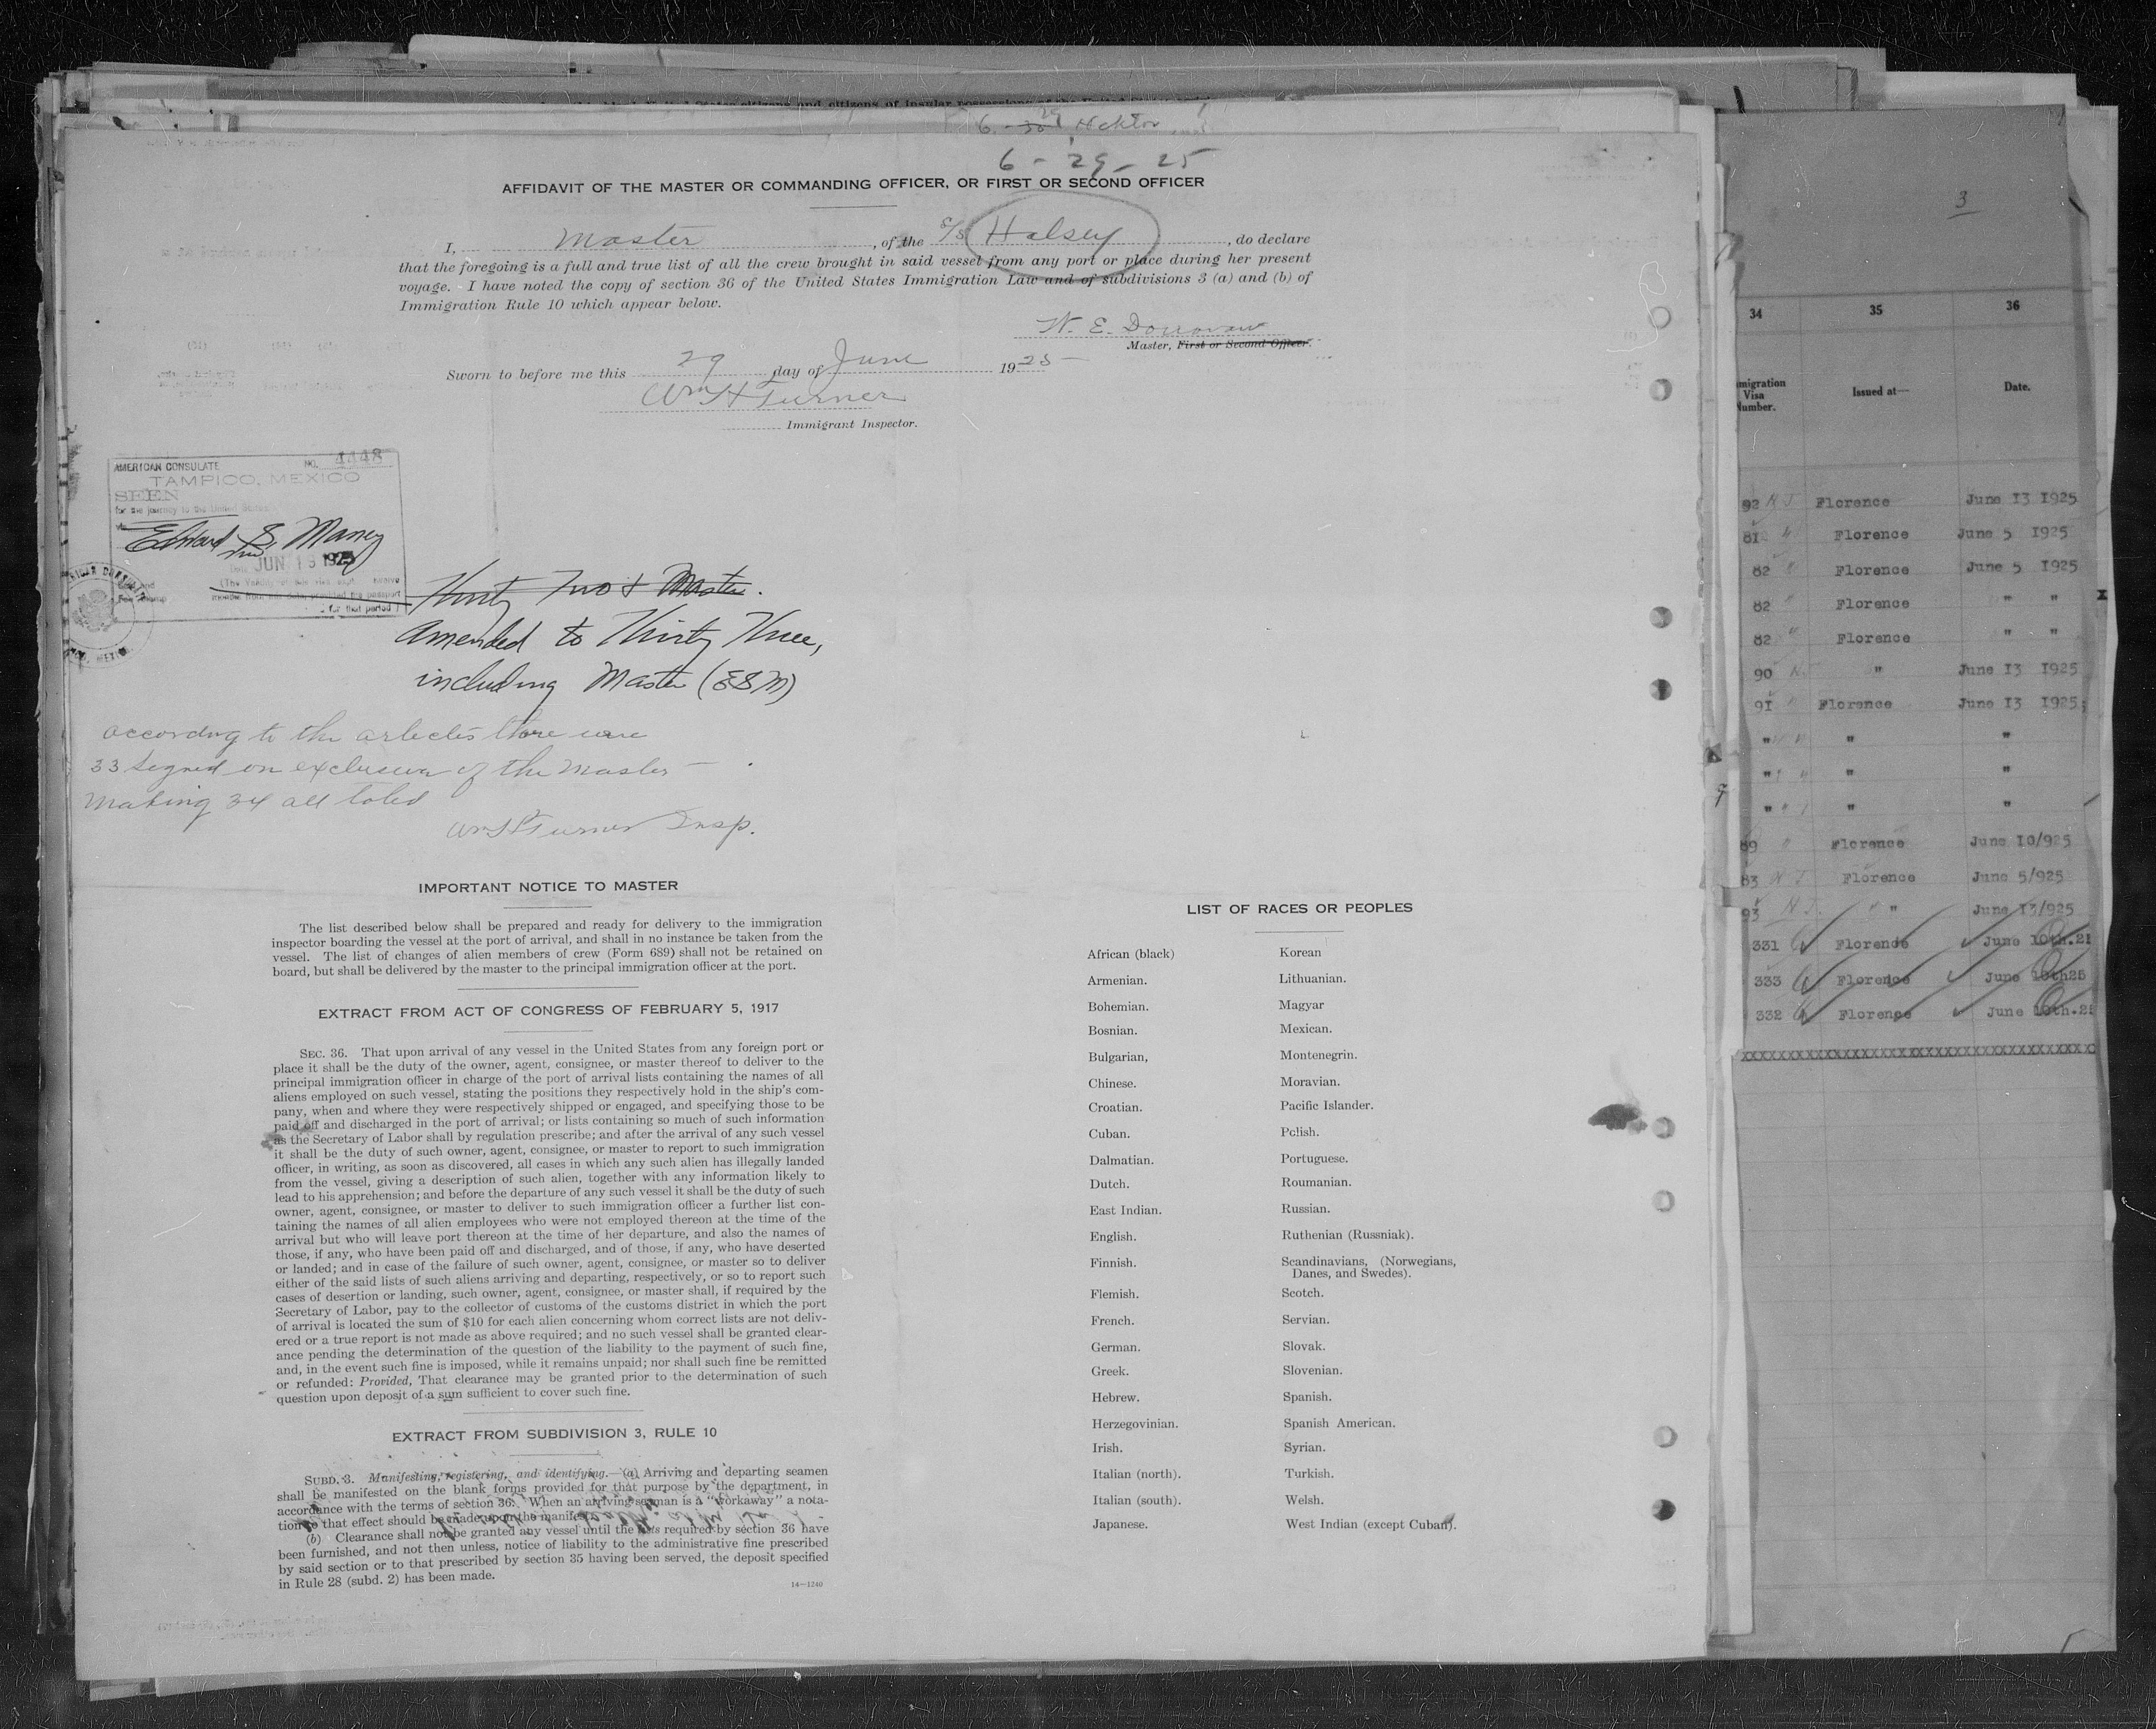 6 - 29 - 25
AFFIDAVIT OF THE MASTER OR COMMANDING OFFICER, OR FIRST OR SECOND OFFICER
I, Master, of the S/S Halsey, do declare
that the foregoing is a full and true list of all the crew brought in said vessel from any port or place during her present
voyage. I have noted the copy of section 36 of the United States Immigration Law and of subdivisions 3 (a) and (b) of
Immigration Rule 10 which appear below.
W. E. Donovan
Master, First or Second Officer.
Sworn to before me this 29 day of June 1925
Wm H Turner
Immigrant Inspector.
AMERICAN CONSULATE NO. 4448
TAMPICO, MEXICO
SEEN
for the journey to the United States
Edward S. Maney
JUN 13 1925
for that period)
Thirty Two & Master.
Amended to Thirty Three,
including Master (ESM)
According to the articles there were
33 signed on exclusion of the Master -
Making 34 all toled
Wm H Turner Insp.
IMPORTANT NOTICE TO MASTER
The list described below shall be prepared and ready for delivery to the immigration
inspector boarding the vessel at the port of arrival, and shall in no instance be taken from the
vessel. The list of changes of alien members of crew (Form 689) shall not be retained on
board, but shall be delivered by the master to the principal immigration officer at the port.
EXTRACT FROM ACT OF CONGRESS OF FEBRUARY 5, 1917
SEC. 36. That upon arrival of any vessel in the United States from any foreign port or
place it shall be the duty of the owner, agent, consignee, or master thereof to deliver to the
principal immigration officer in charge of the port of arrival lists containing the names of all
aliens employed on such vessel, stating the positions they respectively hold in the ship's com-
pany, when and where they were respectively shipped or engaged, and specifying those to be
paid off and discharged in the port of arrival; or lists containing so much of such information
as the Secretary of Labor shall by regulation prescribe; and after the arrival of any such vessel
it shall be the duty of such owner, agent, consignee, or master to report to such immigration
officer, in writing, as soon as discovered, all cases in which any such alien has illegally landed
from the vessel, giving a description of such alien, together with any information likely to
lead to his apprehension; and before the departure of any such vessel it shall be the duty of such
owner, agent, consignee, or master to deliver to such immigration officer a further list con-
taining the names of all alien employees who were not employed thereon at the time of the
arrival but who will leave port thereon at the time of her departure, and also the names of
those, if any, who have been paid off and discharged, and of those, if any, who have deserted
or landed; and in case of the failure of such owner, agent, consignee, or master so to deliver
either of the said lists of such aliens arriving and departing, respectively, or so to report such
cases of desertion or landing, such owner, agent, consignee, or master shall, if required by the
Secretary of Labor, pay to the collector of customs of the customs district in which the port
of arrival is located the sum of $10 for each alien concerning whom correct lists are not deliv-
ered or a true report is not made as above required; and no such vessel shall be granted clear-
ance pending the determination of the question of the liability to the payment of such fine,
and, in the event such fine is imposed, while it remains unpaid; nor shall such fine be remitted
or refunded: Provided, That clearance may be granted prior to the determination of such
question upon deposit of a sum sufficient to cover such fine.
EXTRACT FROM SUBDIVISION 3, RULE 10
SUBD. 3. Manifesting, registering, and identifying.—(a) Arriving and departing seamen
shall be manifested on the blank forms provided for that purpose by the department, in
accordance with the terms of section 36. When an arriving seaman is a "workaway" a nota-
tion to that effect should be made upon the manifest.
(b) Clearance shall not be granted any vessel until the lists required by section 36 have
been furnished, and not then unless, notice of liability to the administrative fine prescribed
by said section or to that prescribed by section 35 having been served, the deposit specified
in Rule 28 (subd. 2) has been made.
14—1240
LIST OF RACES OR PEOPLES
African (black)
Armenian.
Bohemian.
Bosnian.
Bulgarian,
Chinese.
Croatian.
Cuban.
Dalmatian.
Dutch.
East Indian.
English.
Finnish.
Flemish.
French.
German.
Greek.
Hebrew.
Herzegovinian.
Irish.
Italian (north).
Italian (south).
Japanese.
Korean
Lithuanian.
Magyar
Mexican.
Montenegrin.
Moravian.
Pacific Islander.
Polish.
Portuguese.
Roumanian.
Russian.
Ruthenian (Russniak).
Scandinavians, (Norwegians,
Danes, and Swedes).
Scotch.
Servian.
Slovak.
Slovenian.
Spanish.
Spanish American.
Syrian.
Turkish.
Welsh.
West Indian (except Cuban).
3
34 35 36
Visa
Number.
Issued at—
Date.
92 Florence June 13 1925
81 Florence June 5 1925
82 Florence June 5 1925
82 Florence " "
82 Florence " "
90 " June 13 1925
91 Florence June 13 1925
" " "
" " "
" " "
89 Florence June 10/925
83 Florence June 5/925
93 " " June 13/925
331 Florence June 10th.25
333 Florence June 10th25
332 Florence June 10th.25